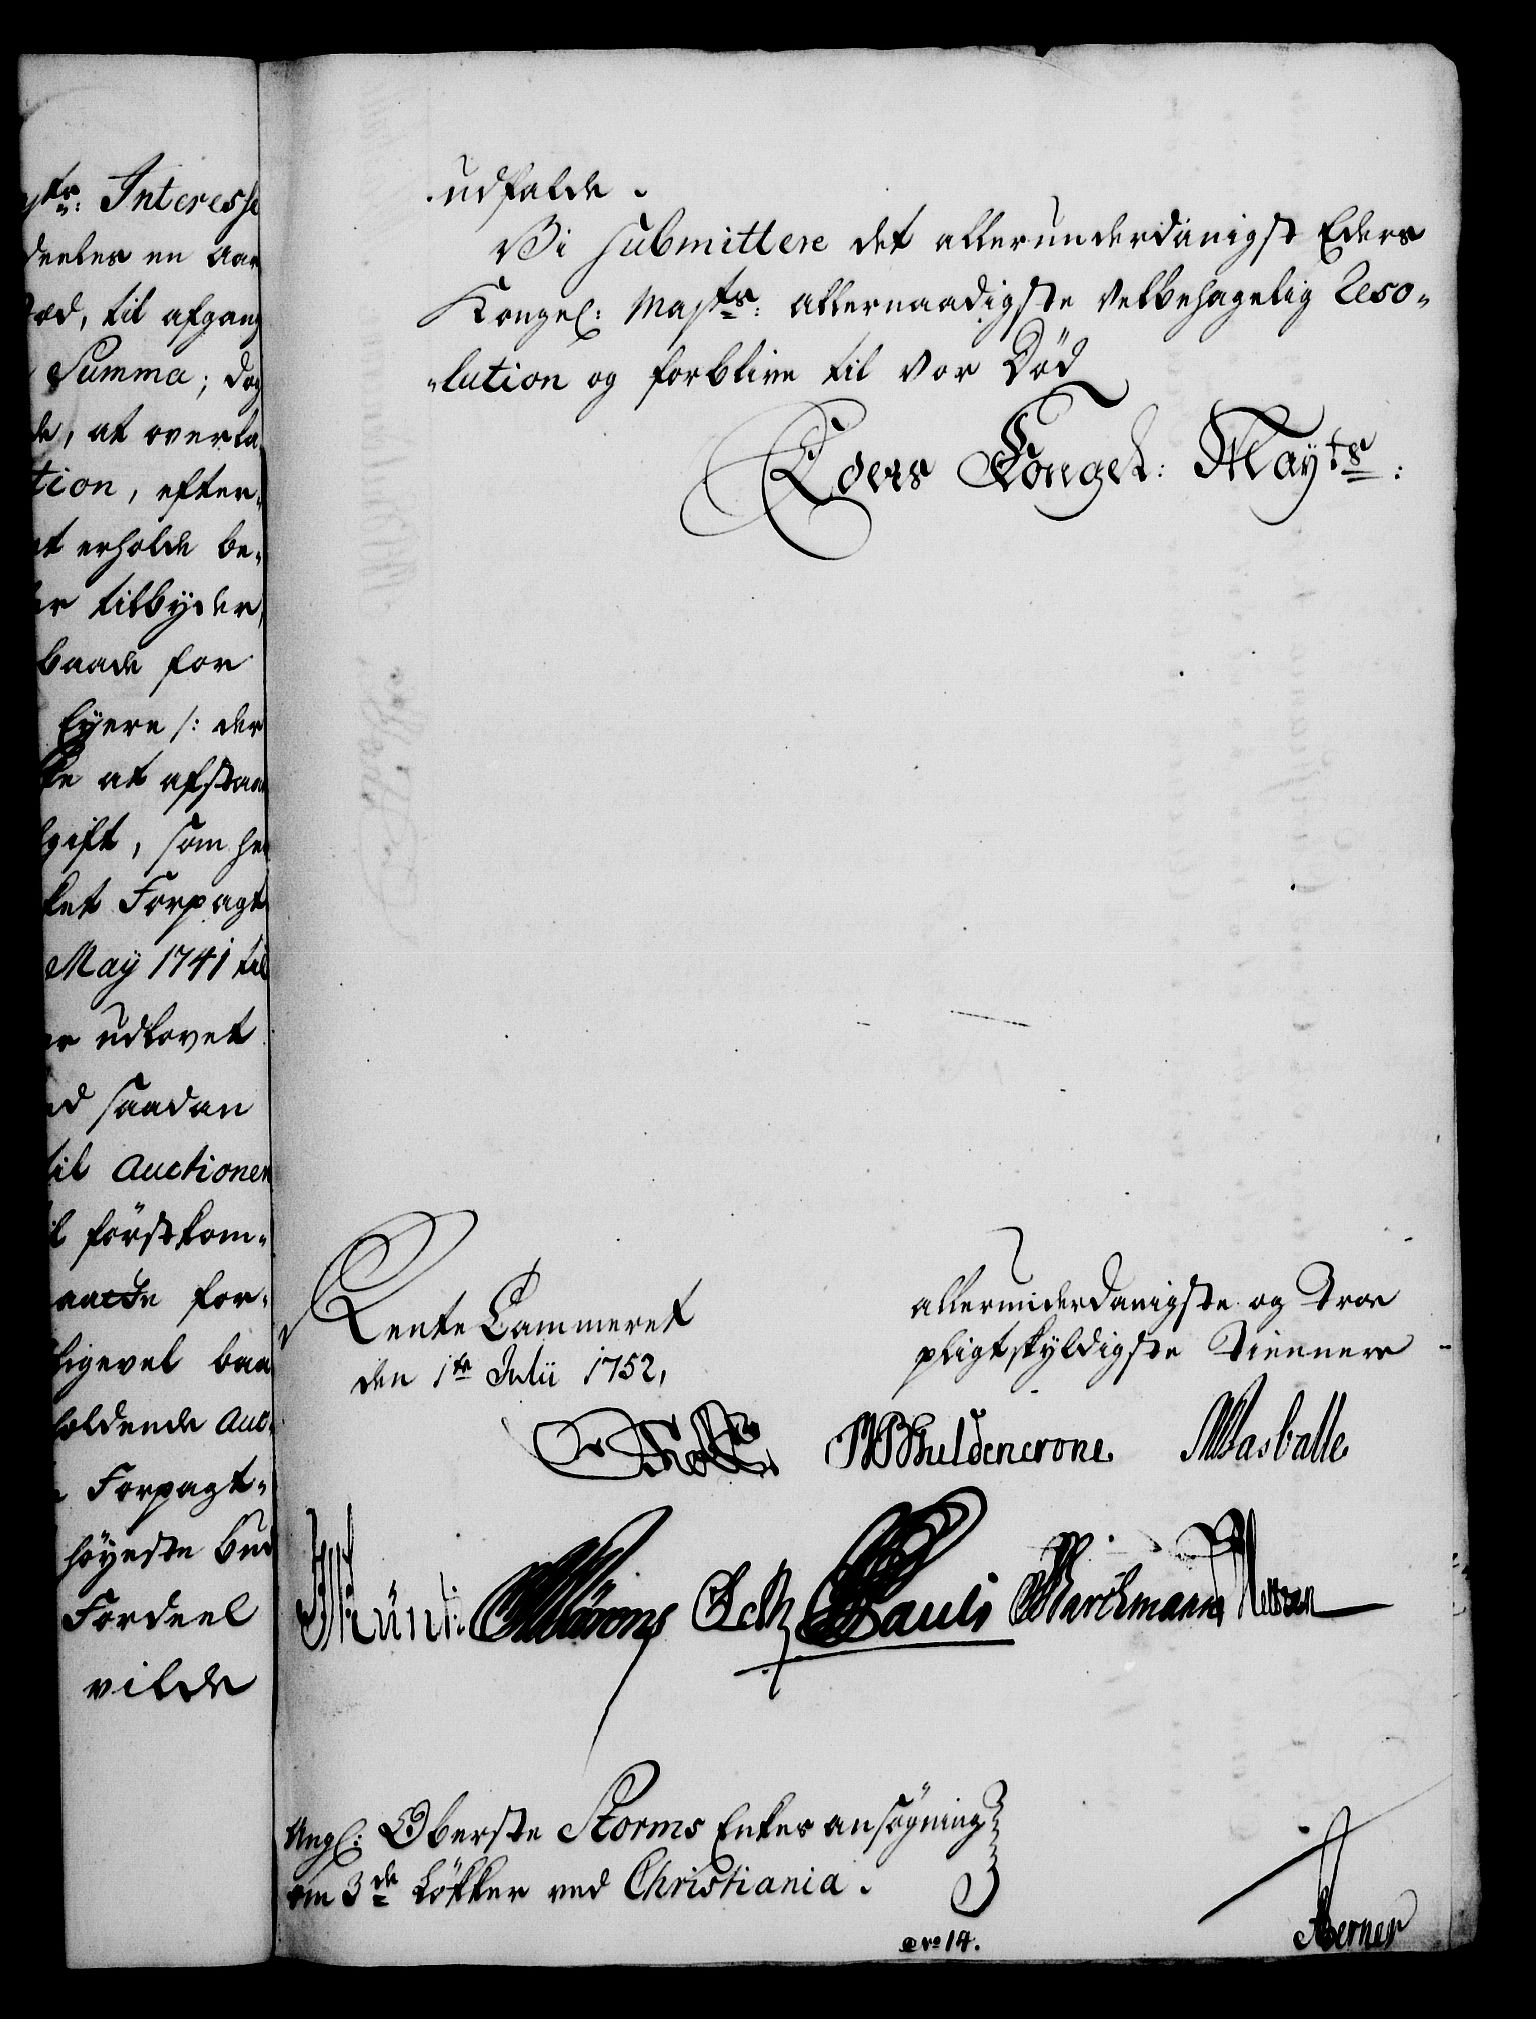 yts: Interesse
deeles en Aar
til afgang
Summa; dog
de, at overta-
tion, efter-
at erholde be-
er tilbyder,
baade for
Eyere /: der
ke at afstaa
gift, som he
ket Forpagt
May 1741 til
er udlovet
ed saadan
til Auctionen
förstkom-
for-
ligevel baa
holdende Auc-
Forpagt-
höyeste Bud
Fordeel
vilde
udfalde.
Vi submittere det allerunderdanigst Eders
Kongel: Mayts: allernaadigste Velbehagelig Reso-
-lution og forblive til vor Död
Eders Kongel: Mayts:
Rente Cammeret
den 1te Julii 1752,
allerunderdanigste og Troe
pligtskyldigste Tiennere
Holst Guldencrone Masballe
JMünt: Pauli Marckmann
Angl: Oberste Storms Enkes ansögning
om 3de Lökker ved Christiania.
No 14.
Berner